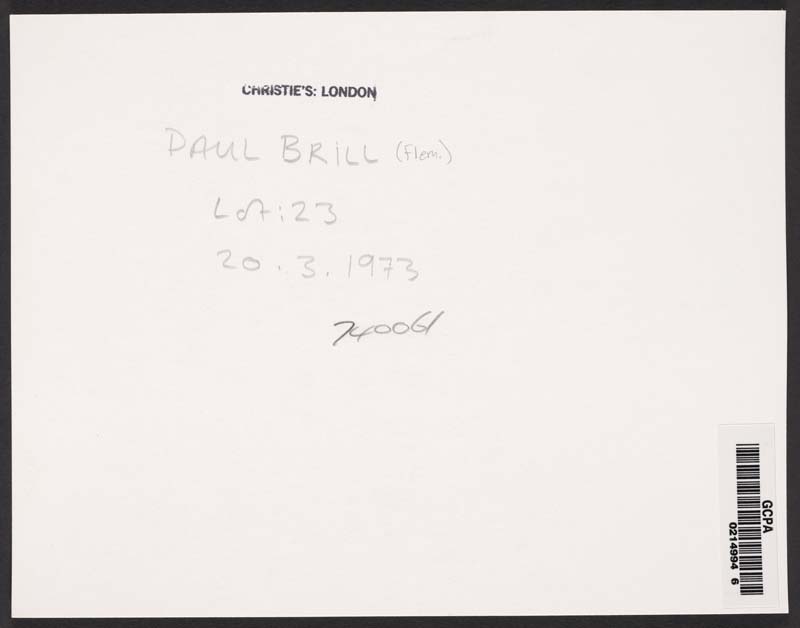 CHRISTIE'S: LONDON
PAUL BRILL (Flem.)
Lot: 23
20. 3. 1973
740061
GCPA
0214994 6